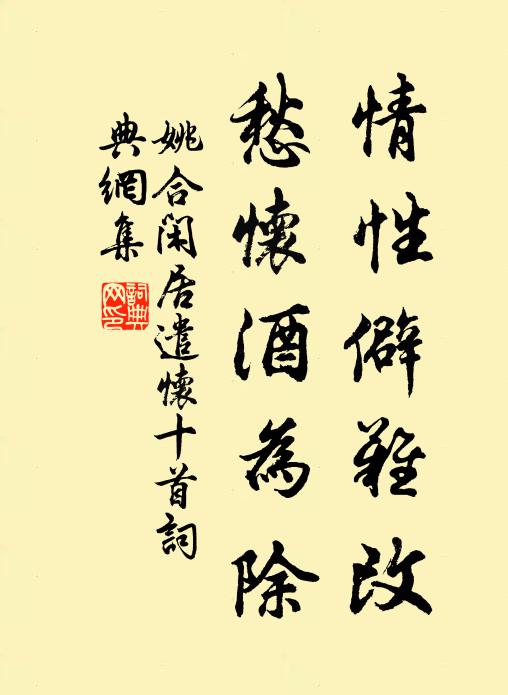 情性僻難改
愁懷酒為除
姚合閑居遣懷十首詞
典網集
詞典網印